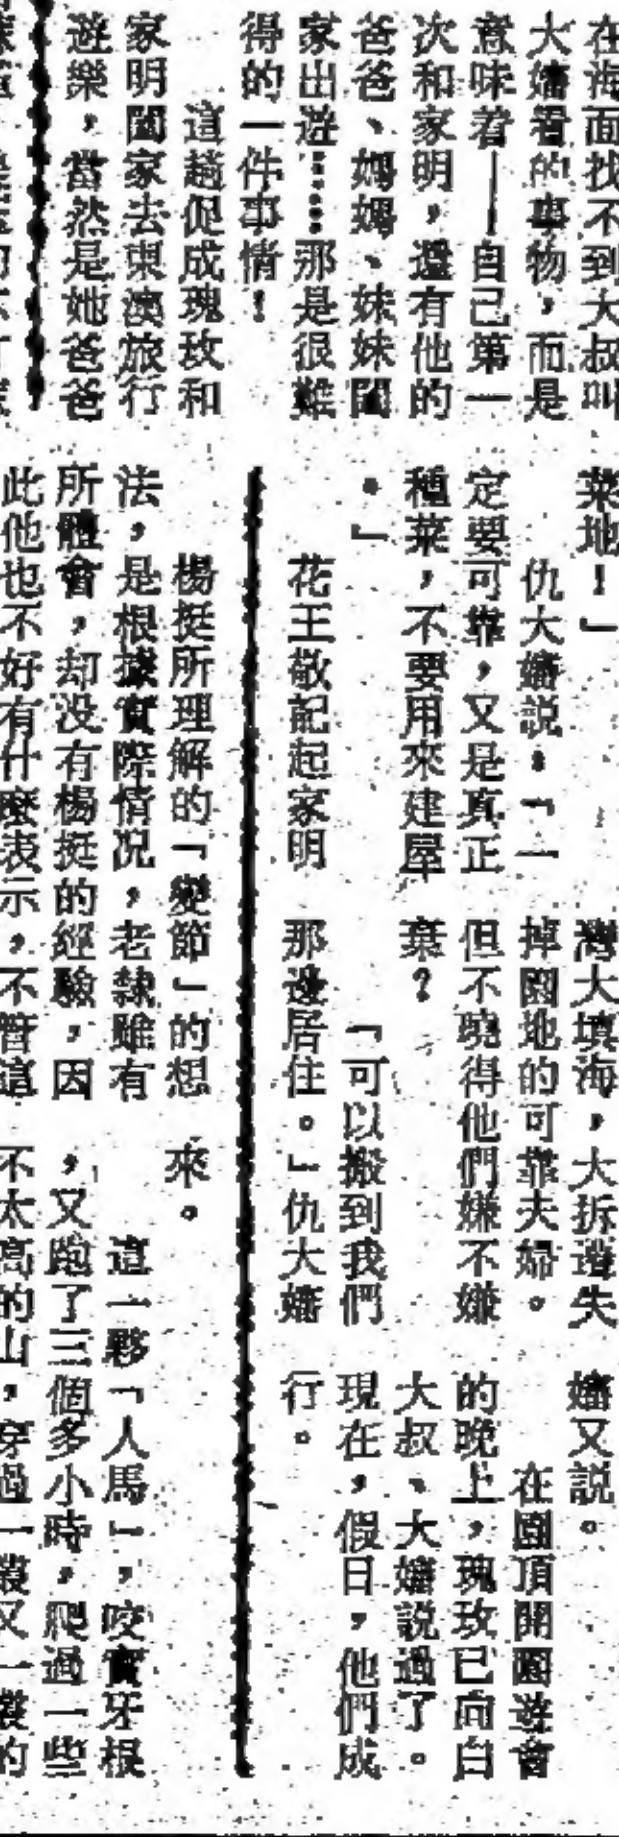 在海面找不到大叔叫
大嬸看的事物，而是
意味着——自己第一
次和家明，還有他的
爸爸、媽媽、妹妹闔
家出遊……那是很難
得的一件事情！
這趟促成瑰玫和
家明闔家去東澳旅行
遊樂，當然是她爸爸
菜地！」
仇大嬸説：「一
定要可靠，又是真正
種菜，不要用來建屋
。」
花王敬記起家明
灣大填海，大拆遷失
掉園地的可靠夫婦。
但不曉得他們嫌不嫌
棄？
「可以搬到我們
那邊居住。」仇大嬸
嬸又説。
在園頂開園遊會
的晚上，瑰玫已向白
大叔、大嬸説過了。
現在，假日，他們成
行。
楊挺所理解的「變節」的想
法，是根據實際情况，老隸雖有
所體會，却没有楊挺的經驗，因
此他也不好有什麼表示，不管這
來。
這一夥「人馬」，咬實牙根
，又跑了三個多小時，爬過一些
不太高的山，穿過一叢又一叢的